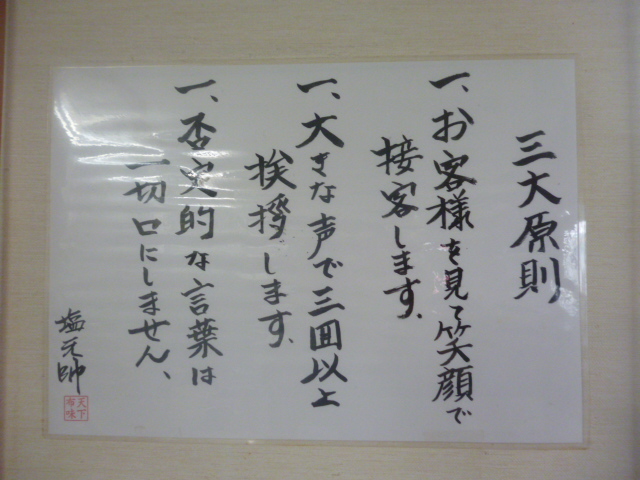 三大原則
一、お客様を見て笑顔で
接客します.
一、大きな声で三回以上
挨拶します.
一、否定的な言葉は
一切口にしません、
塩元帥
天下
布味